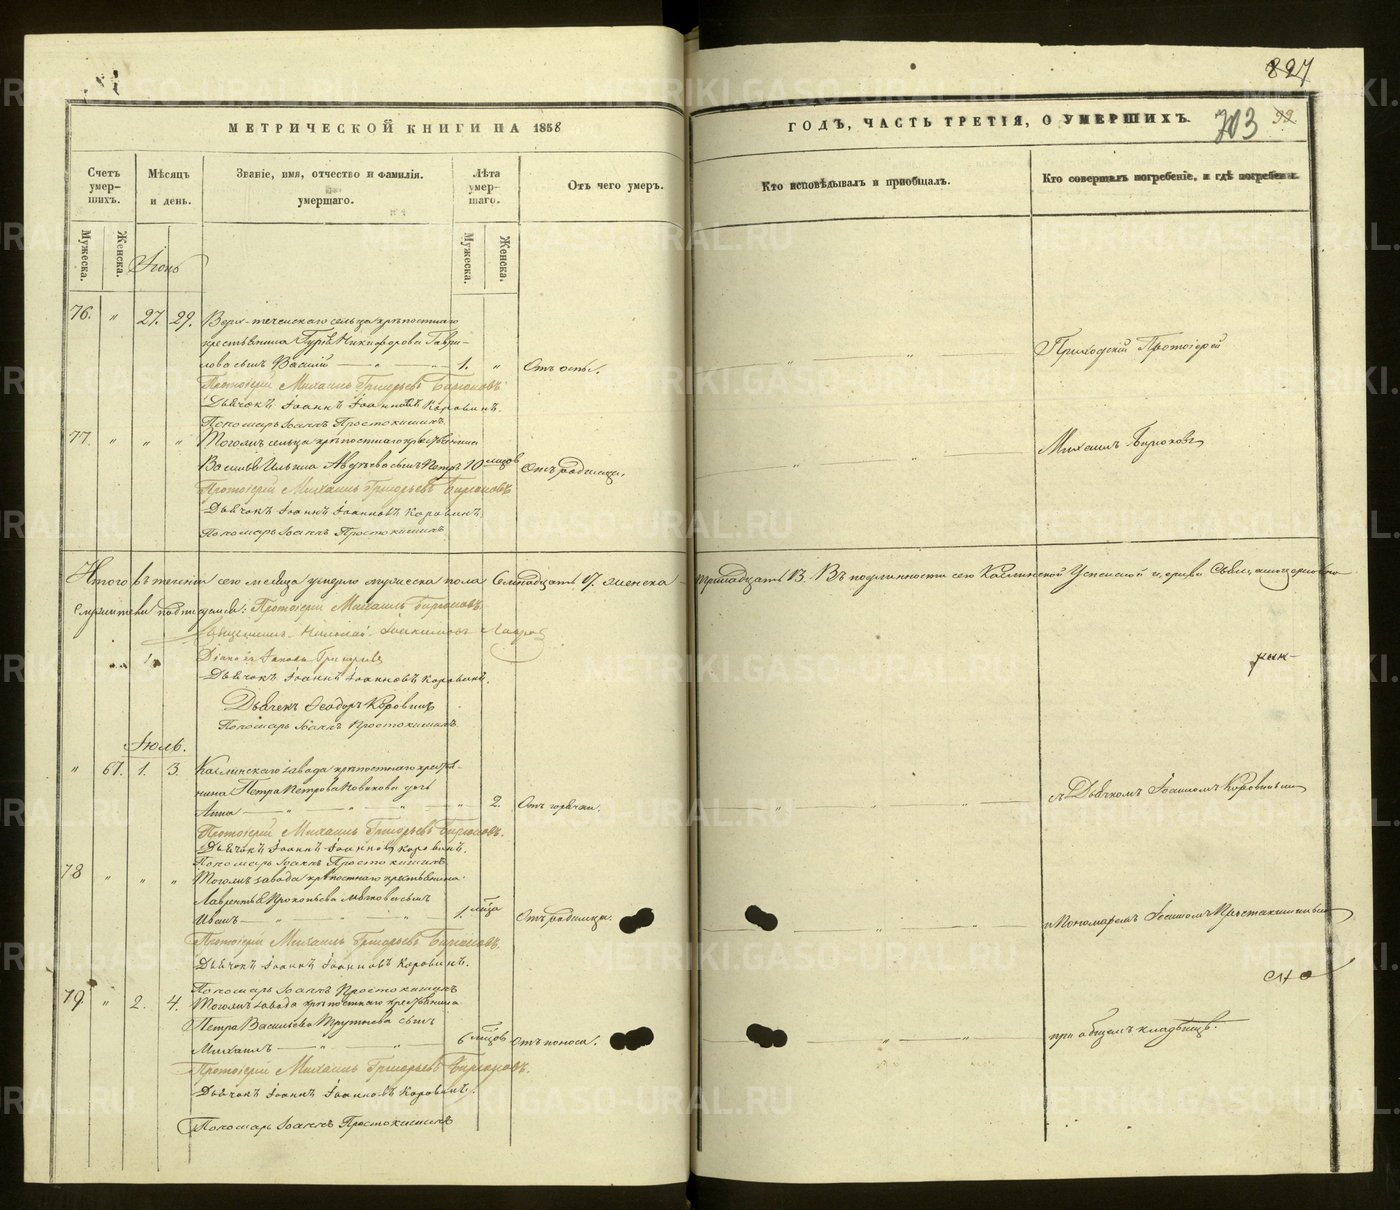 827
703 92
МЕТРИЧЕСКОЙ КНИГИ НА 1858
ГОДЪ, ЧАСТЬ ТРЕТІЯ, О УМЕРШИХЪ.
Счетъ умер-шихъ.
Мѣсяцъ и день.
Званіе, имя, отчество и фамилія. умершаго.
Лѣта умер-шаго.
Отъ чего умеръ.
Кто исповѣдывалъ и пріобщалъ.
Кто совершалъ погребеніе, и гдѣ погребены.
Мужеска.
Женска.
Мужеска.
Женска.
Іюнь
76. " 27. 29. Верх-теченскаго сельца крѣпостнаго
крестьянина Гурія Никифорова Гаври-
лова сынъ Василій 1. " Отъ оспы.
Приходскій Протоіерей
Протоіерей Михаилъ Григорьевъ Бирюковъ
Дьячокъ Іоаннъ Іоанновъ Коровинъ.
Пономарь Іоаннъ Простокишинъ
77. " " " Тогожъ сельца крѣпостнаго крестьянина
Василья Ильина Авдѣева сынъ Петръ 10 мѣсяцовъ Отъ родимца.
Михаилъ Бирюковъ
Протоіерей Михаилъ Григорьевъ Бирюковъ
Дьячокъ Іоаннъ Іоанновъ Коровинъ
Пономарь Іоаннъ Простокишинъ
Итого въ теченіи сего мѣсяца умерло мужеска пола Семнадцать 17. женска - тринадцать 13. Въ подлинности сего Каслинской Успенской церкви Священноцерковно
служители подписуемся: Протоіерей Михаилъ Бирюковъ
Священникъ Николай Іоакимовъ
Діаконъ Іаковъ Григорьевъ
Дьячокъ Іоаннъ Іоанновъ Коровинъ.
Дьячекъ Ѳеодоръ Коровинъ
Пономарь Іоаннъ Простокишинъ
Іюль.
" 67. 1. 3. Каслинскаго завода крѣпостнаго крестья-
нина Петра Петрова Новикова дочь
Анна " 2. Отъ горячки.
съ Дьячкомъ Іоанномъ Коровинымъ
Протоіерей Михаилъ Григорьевъ Бирюковъ.
Дьячокъ Іоаннъ Іоанновъ Коровинъ.
Пономарь Іоаннъ Простокишинъ
78 " " " Тогожъ завода крѣпостнаго крестьянина
Лаврентья Прокопьева сынъ
Иванъ 1. мѣсяца Отъ родимца.
и Пономаремъ Іоанномъ Простокишинымъ
Протоіерей Михаилъ Григорьевъ Бирюковъ.
Дьячокъ Іоаннъ Іоанновъ Коровинъ.
Пономарь Іоаннъ Простокишинъ
79 " 2. 4. Тогожъ завода крѣпостнаго крестьянина
Петра Васильева Трутнева сынъ
Михаилъ 6 мѣсяцовъ Отъ поноса.
при общемъ кладбищѣ.
Протоіерей Михаилъ Григорьевъ Бирюковъ.
Дьячокъ Іоаннъ Іоанновъ Коровинъ.
Пономарь Іоаннъ Простокишинъ
METRIKI.GASO-URAL.RU